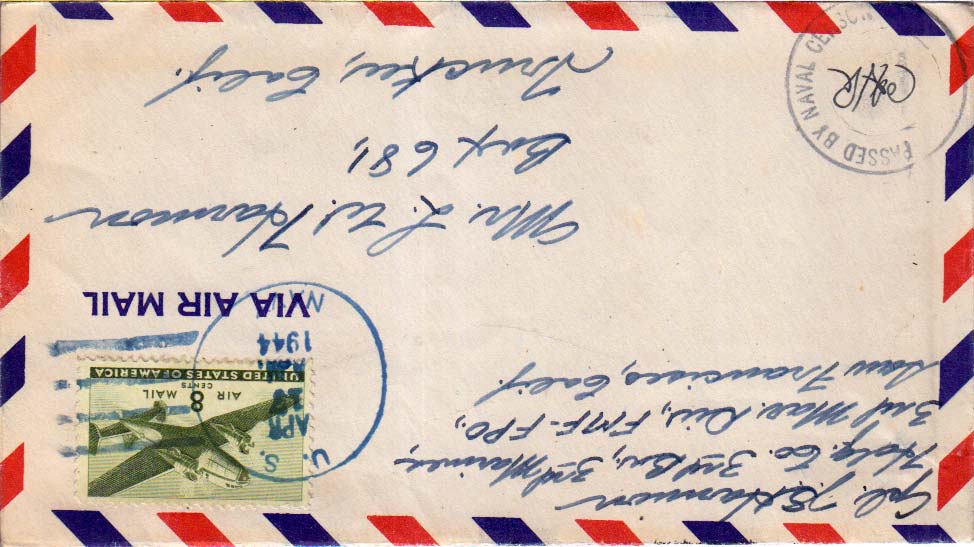 Cpl. J. E. Harmon
Hdq. Co. 3rd Bn, 3rd Marines,
3rd Mar. Div, FMF-FPO,
San Francisco, Calif.
U. S.
APR
1944
NAVY
UNITED STATES OF AMERICA
AIR MAIL
8
CENTS
VIA AIR MAIL
Mr. L. W. Harmon
Box 681,
Truckee, Calif.
PASSED BY NAVAL CENSOR